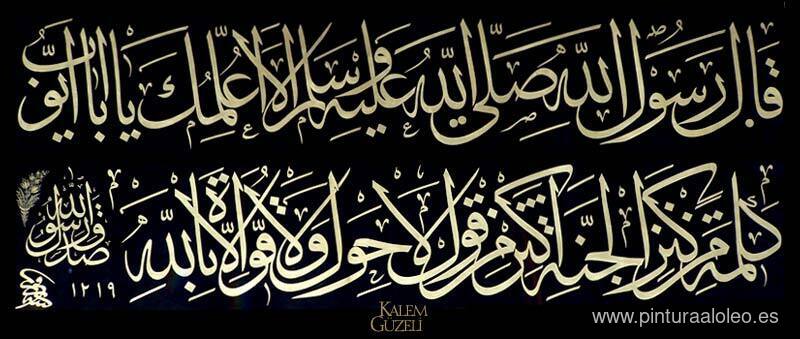 قال رسول الله صلى الله عليه وسلم ألا أعلمك يا أبا أيوب
كلمة من كنز الجنة أكثر من قول لا حول ولا قوة إلا بالله
صدق رسول الله
١٢١٩
KALEM GÜZELİ
www.pinturaaloleo.es